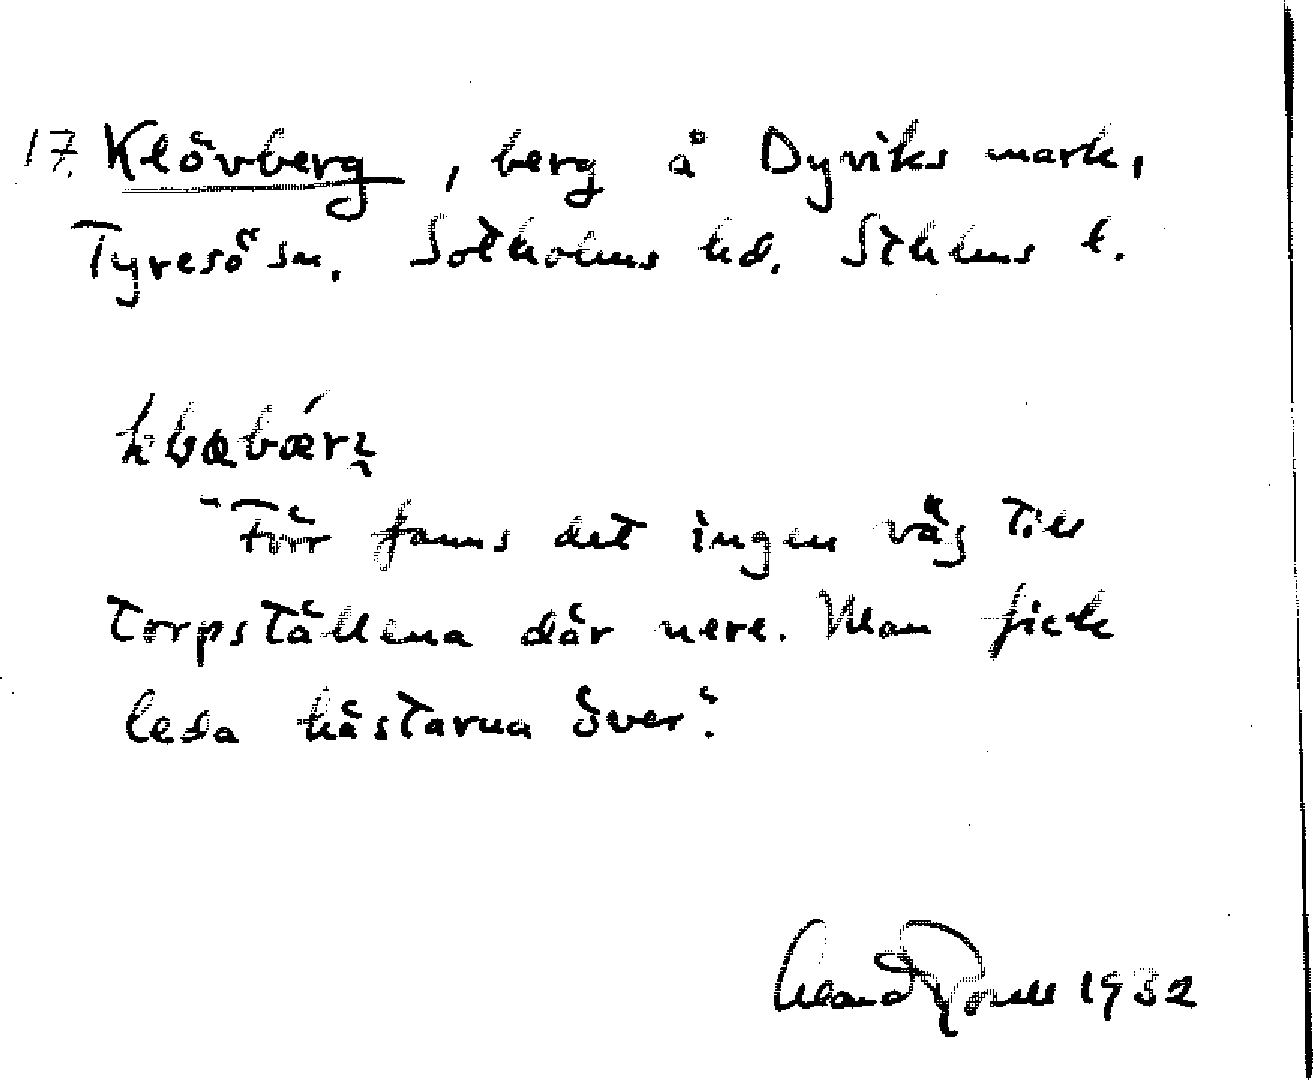 17. Klövberg, berg å Dyviks mark,
Tyresö sn. Sotholms hd. Sthlms l.
"Förr fanns det ingen väg till
torpställena där nere. Man fick
leda hästarna över".
1932